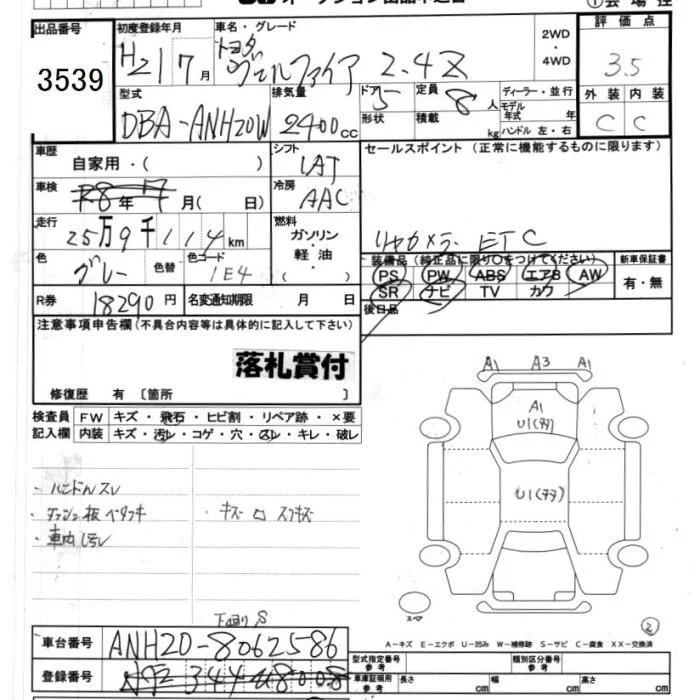 出品番号 初度登録年月 車名・グレード 2WD・4WD 評価点
3539 H21 7月 トヨタ ヴェルファイア 2.4Z 3.5
型式 排気量 ドア 定員 ディーラー・並行 外装 内装
DBA-ANH20W 2400cc 5 8人 モデル年式 年 C C
形状 積載 kg ハンドル 左・右
車歴 自家用・( ) シフト セールスポイント (正常に機能するものに限ります)
IAT
車検 R8年 7月( 日) 冷房 AAC
走行 25万9千114km 燃料 ガソリン・軽油・( ) リヤカメラ ETC
色 グレー 色替 色コード 1E4 装備品(純正品に限り○をつけてください) 新車保証書
PS PW ABS エアB AW 有・無
R券 18290円 名変通知期限 月 日 SR ナビ TV カワ
後日品
注意事項申告欄(不具合内容等は具体的に記入して下さい)
落札賞付
修復歴 有 〔箇所 〕
A1 A3 A1
検査員 FW キズ・飛石・ヒビ割・リペア跡・×要
記入欄 内装 キズ・汚レ・コゲ・穴・スレ・キレ・破レ
A1
U1
U1
・ハンドルスレ
・ダッシュ板ベタツキ ・キズ ロ スリキズ
・車内汚レ
下回りS
スペア
2
A-キズ E-エクボ U-凹み W-補修跡 S-サビ C-腐食 XX-交換済
車台番号 ANH20-8062586
型式指定番号 参考 類別区分番号 参考
登録番号 344 8008
車庫証明用 参考 長さ cm 幅 cm 高さ cm